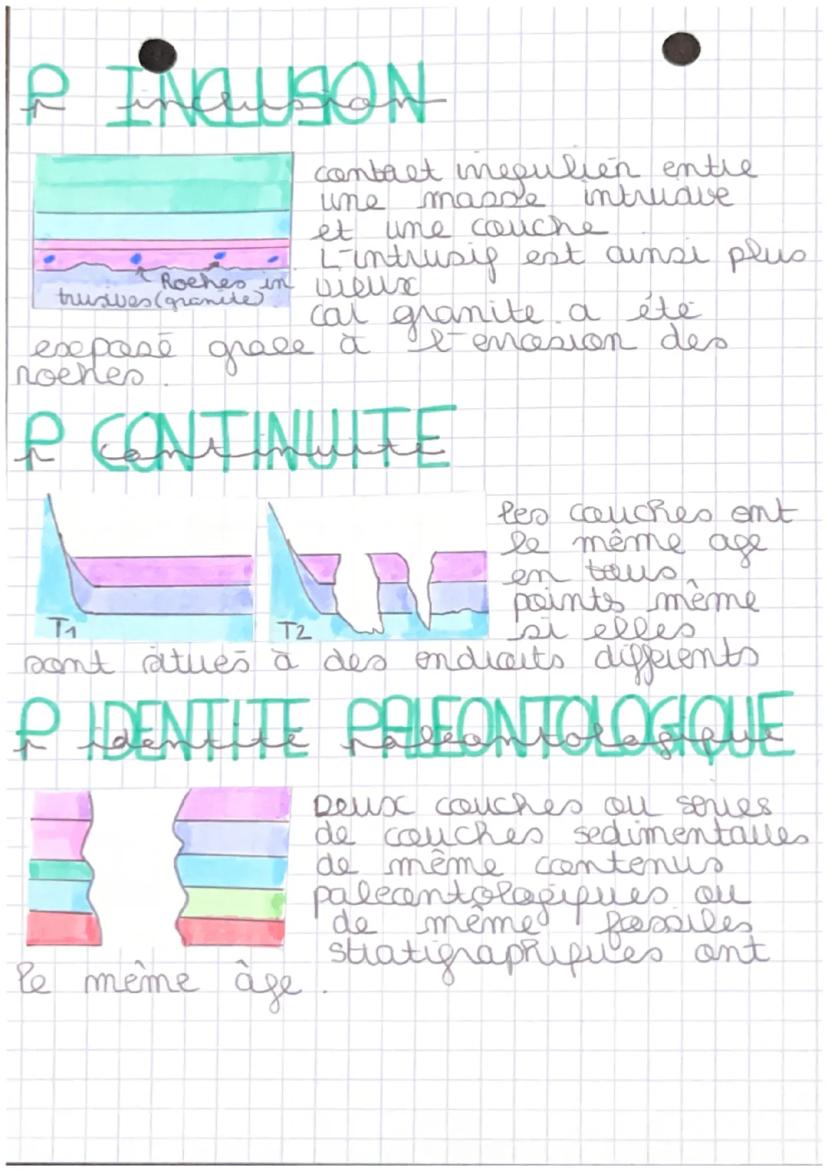 P INCLUSION
P inclusion
contact irregulier entre
une masse intrusive
et une couche
L'intrusif est ainsi plus
vieux
Roches in
trusives (granite)
car granite a été
exposé grace à l'erosion des
roches.
P CONTINUITE
P continuité
les couches ont
le même age
en tous
points même
si elles
T1
T2
sont situés à des endroits differents
P IDENTITE PALEONTOLOGIQUE
P identité paleontologique
Deux couches ou series
de couches sedimentaires
de même contenus
paleontologiques ou
de même fossiles
stratigraphiques ont
le même âge.